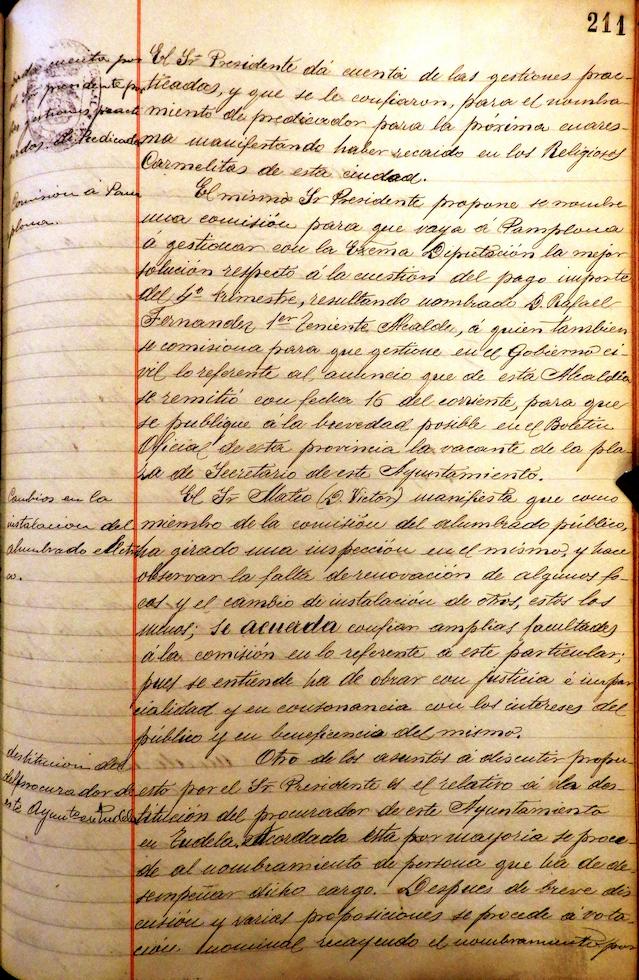 211
dada cuenta por
el Sr. presidente por
las gestiones pract
de Predicador
El Sr Presidente dá cuenta de las gestiones prac-
ticadas, y que se le confiaron, para el nombra-
miento de predicador para la próxima cuares-
ma manifestando haber recaido en los Religiosos
Carmelitas de esta ciudad.
Comision á Pam
plona.
El mismo Sr Presidente propone se nombre
una comisión para que vaya á Pamplona
á gestionar con la Excma Diputación la mejor
solución respecto á la cuestion del pago importe
del 4º trimestre, resultando nombrado D. Rafael
Fernandez 1er Teniente Alcalde, á quien tambien
se comisiona para que gestione en el Gobierno ci-
vil lo referente al anuncio que de esta Alcaldia
se remitió con fecha 16 del corriente, para que
se publique á la brevedad posible en el Boletin
Oficial de esta provincia la vacante de la pla-
za de Secretario de este Ayuntamiento.
Cambios en la
instalacion del
alumbrado electri
co.
El Sr Mateo (D. Victor) manifiesta que como
miembro de la comisión del alumbrado público,
ha girado una inspección en el mismo, y hace
observar la falta de renovación de algunos fo-
cos y el cambio de instalación de otros, estos los
menos; se acuerda confiar amplias facultades
á la comisión en lo referente á este particular;
pues se entiende ha de obrar con justicia é impar
cialidad y en consonancia con los intereses del
público y en beneficencia del mismo.
destitucion del
del procurador de
este Ayunto en Tudela
Otro de los asuntos á discutir propu-
esto por el Sr Presidente es el relativo á la des-
titución del procurador de este Ayuntamiento
en Tudela. Acordada esta por mayoria se proce-
de al nombramiento de persona que ha de de-
sempeñar dicho cargo. Despues de breve dis
cusión y varias proposiciones se procede á vota
ción nominal recayendo el nombramiento por